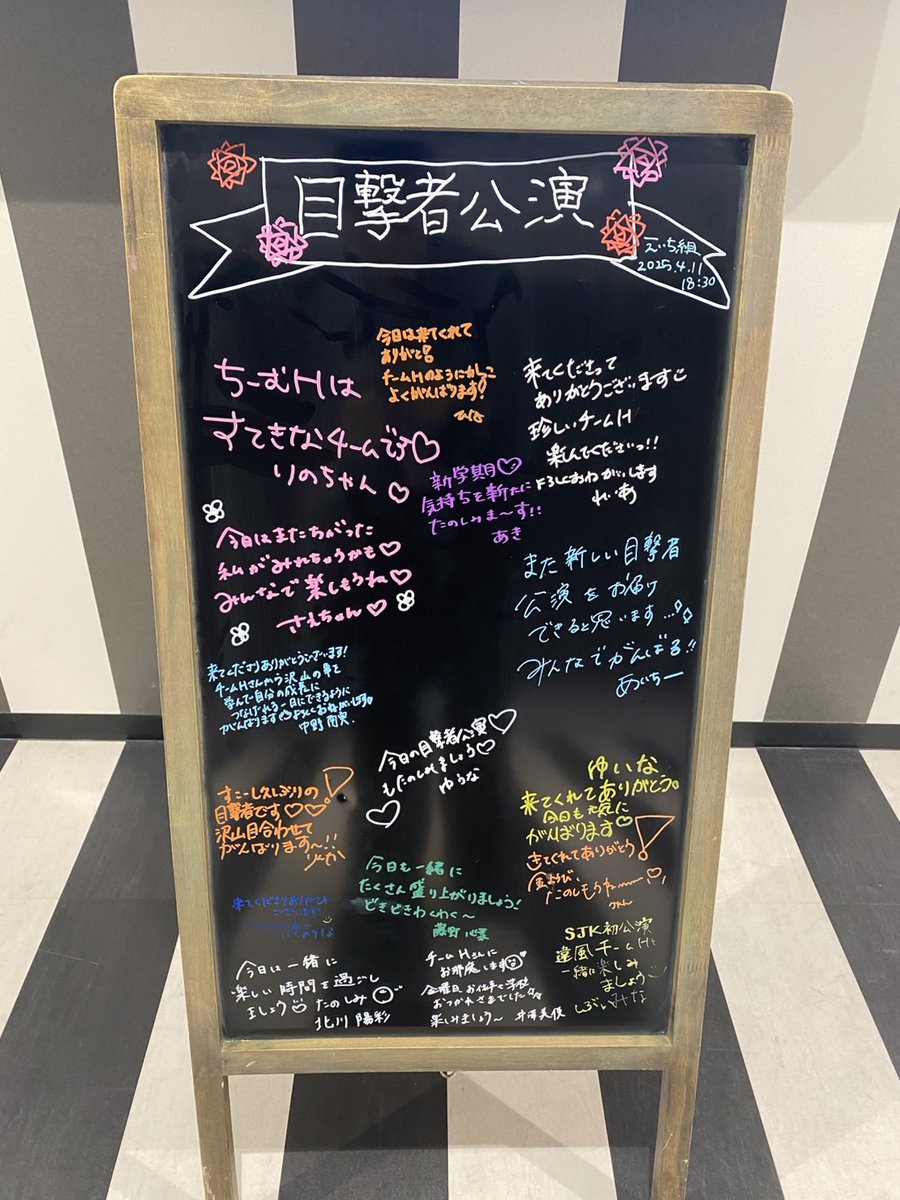 目撃者公演
えいち組
2025.4.11
18:30
今日は来てくれて
ありがと
チームHのようにかっこ
よくがんばります!
ちーむHは
すてきなチームです♡
りのちゃん♡
来てくださって
ありがとうございます
珍しいチームH
楽しんでくださいっ!!
よろしくおねがいします
新学期♡
気持ちを新たに
たのしみま〜す!!
あき
今日はまたちがった
私がみれちゃうかも♡
みんなで楽しもうね♡
さえちゃん♡
また新しい目撃者
公演をお届け
できると思います...!
みんなでがんばる!!
あいちー
来てくださりありがとうございます!
チームHさんから沢山の事を
学んで自分の成長に
つなげれる一日にできるように
がんばります よろしくおねがいします
今日の目撃者公演♡
もたのしみましょう♡
ゆうな
すこーし久しぶりの
目撃者です♡♡
沢山目合わせて
がんばります〜!!
ゆいな
来てくれてありがとう。
今日も元気に
がんばります♡
きてくれてありがとう!
たのしもうねー♡
今日も一緒に
たくさん盛り上がりましょう!
どきどきわくわく〜
来てくださりありがとう
ございます!
SJK初公演
違風チームHと
一緒に楽しみ
ましょう
しぶいみな
今日は一緒に
楽しい時間を過ごし
ましょう たのしみ
北川 陽彩
チームHさんに
お邪魔します
金曜日 お仕事と学校
おつかれさまでした
楽しみましょう〜 井澤美優